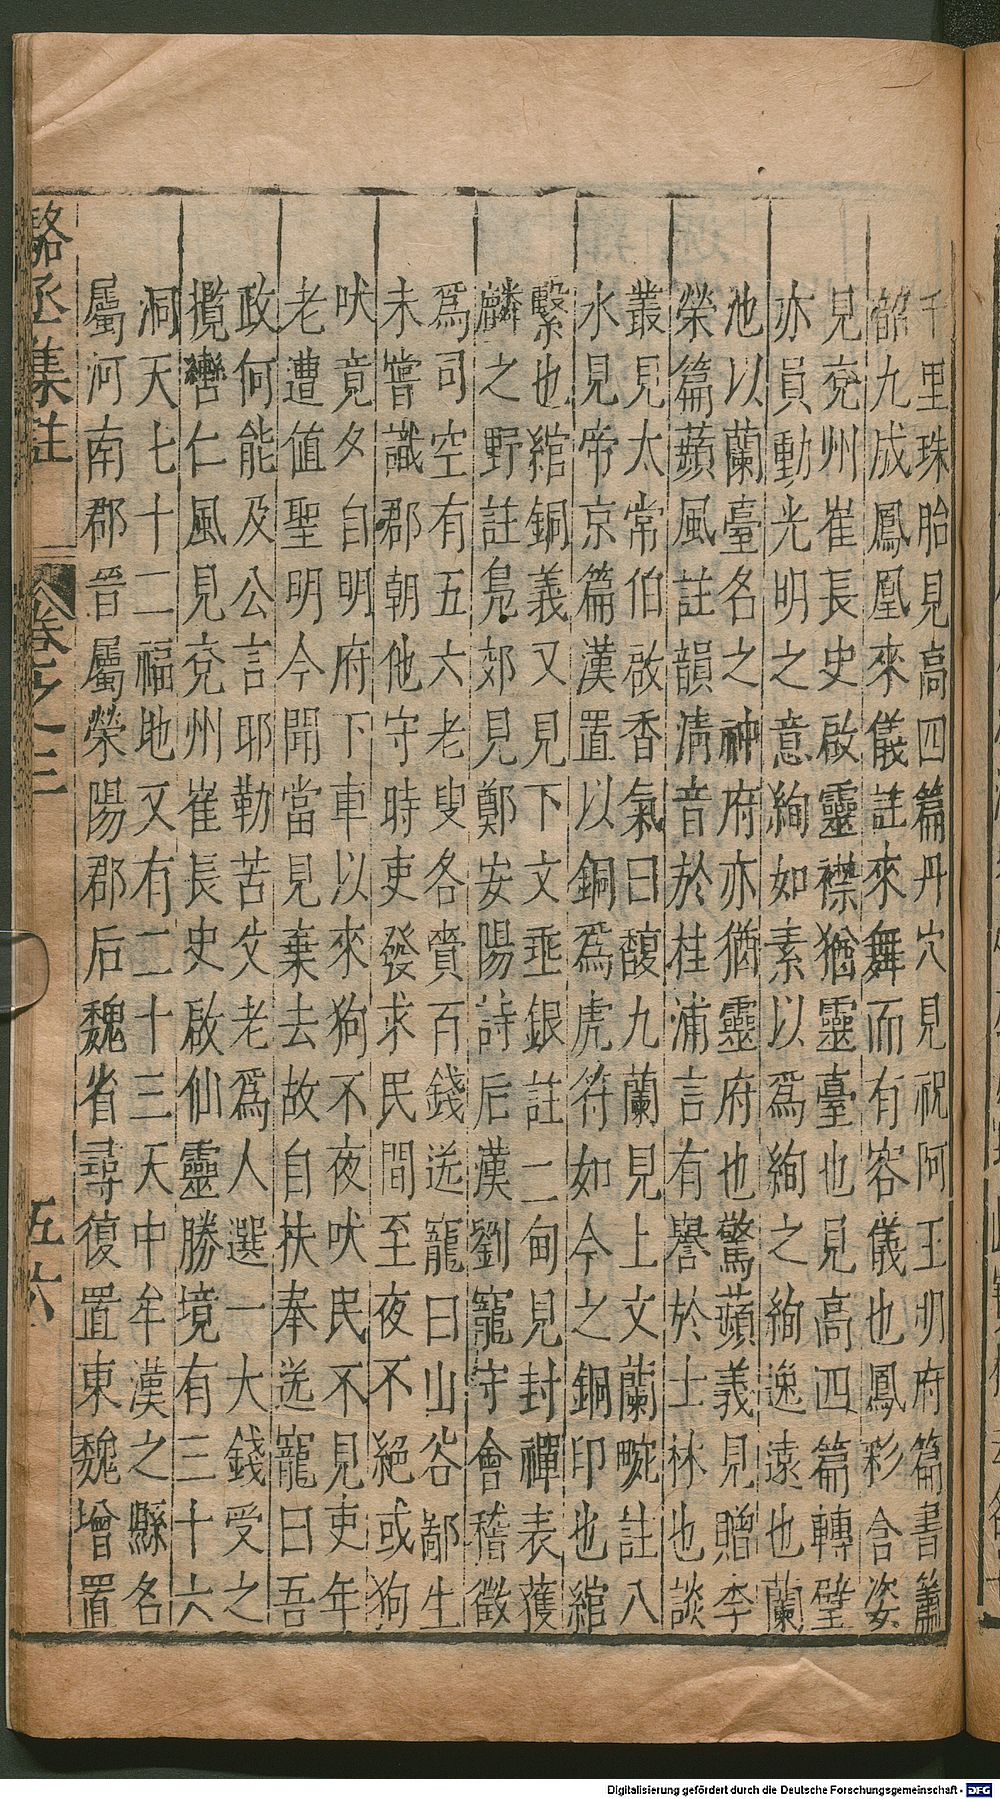 千里珠胎見高四篇丹穴見祝阿王明府篇書簫
韶九成鳳凰來儀註來舞而有容儀也鳳彩含姿
見兗州崔長史啟靈襟猶靈臺也見高四篇轉璧
亦員動光明之意絢如素以為絢之絢逸遠也蘭
池以蘭臺名之神府亦猶靈府也驚蘋義見贈李
榮篇蘋風註韻清音於桂浦言有譽於士林也談
叢見太常伯啟香氣曰馥九蘭見上文蘭畹註八
水見帝京篇漢置以銅爲虎符如今之銅印也綰
繫也綰銅義又見下文垂銀註二甸見封禪表獲
麟之野註鳧郊見鄭安陽詩后漢劉寵守會稽徵
爲司空有五六老叟各賫百錢送寵曰山谷鄙生
未嘗識郡朝他守時吏發求民間至夜不絕或狗
吠竟夕自明府下車以來狗不夜吠民不見吏年
老遭值聖明今聞當見棄去故自扶奉送寵曰吾
政何能及公言耶勒苦父老爲人選一大錢受之
攬轡仁風見兗州崔長史啟仙靈勝境有三十六
洞天七十二福地又有二十三天中牟漢之縣名
屬河南郡晉屬滎陽郡后魏省尋復置東魏增置
駱丞集註
卷之三
五六
Digitalisierung gefördert durch die Deutsche Forschungsgemeinschaft - DFG